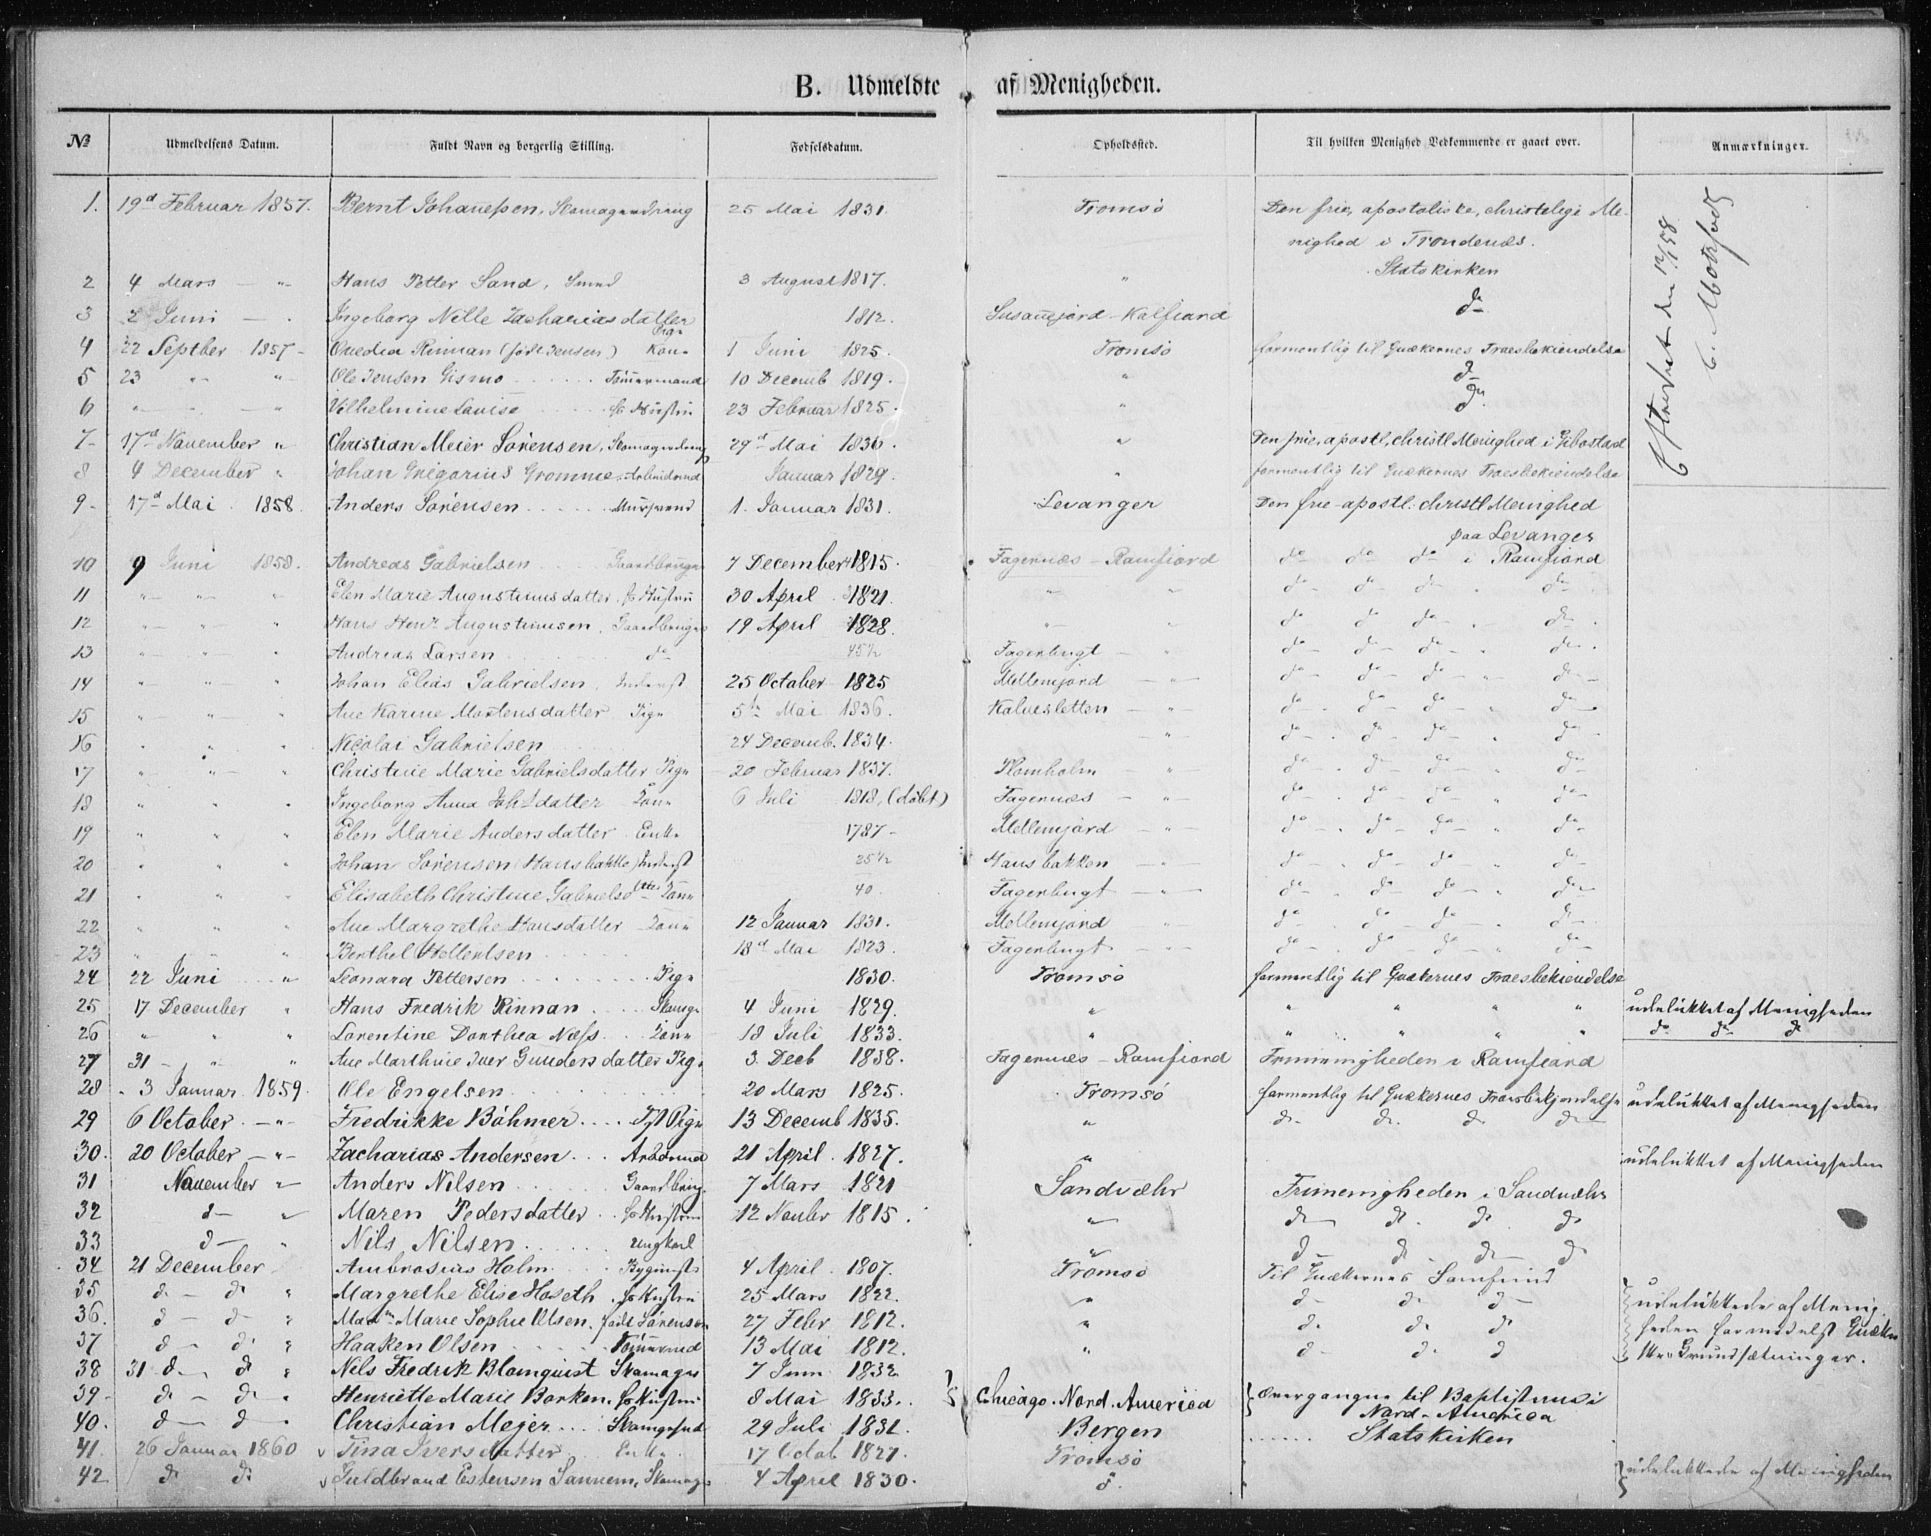 B. Udmeldte af Menigheden.
№ Udmeldelsens Datum. Fuldt Navn og borgerlig Stilling. Fødselsdatum. Opholdssted. Til hvilken Menighed Vedkommende er gaaet over. Anmærkninger.
1. 19d Februar 1857. Bernt Johanessen, Skomagerdreng 25 Mai 1831. Tromsø Den frie, apostoliske, christelige Me-
nighed i Trondenæs.
2 4 Mars — „ Hans Petter Sand, Smed 3 August 1817. „ Statskirken
3 2 Juni — . Ingeborg Nille Zachariasdatter Pige 1812. Susanejord - Kalfjord do
4 22 Septber 1857 - Ovedia Rinnan (født Jensen) Kone 1 Juni 1825. Tromsø formentlig til Quækernes Troesbekiendelse
5 23 „ „ Ole Jensen Gismo Tømermand 10 Decemb 1819. „ do
6 „ „ „ Vilhelmine Lovise Hustru 23 Februar 1825. „ do
7- 17d November „ Christian Meier Sørensen, Skomagerdreng 29d Mai 1836. „ Den frie, apostl, christl Menighed i Gibostad
8 4 December „ Johan Gregorius Gromme, Arbeidsmd Januar 1829. „ formentlig til Quækernes Troesbekiendelse
Efterseet den 12/1 58
9- 17d Mai . 1858. Anders Sørensen Mursvend 1. Januar 1831. Levanger Den frie apostl. christl Menighed
paa Levanger
10 9 Juni 1858. Andreas Gabrielsen Gaardbruger 7 December 1815. Fagernæs - Ramfiord do do do i Ramfiord
11 „ „ „ Elen Marie Augustinusdatter, Hustru 30 April 1821. „ „ do do do „ do
12 „ „ „ Hans Henr Augustinusen, Gaardbruger 19 April 1828. „ „ do do do „ do
13 „ „ „ Andreas Larsen do 45½ Fagerbugt — „ do do do „ do
14 „ „ „ Johan Elias Gabrielsen, Inderst 25 October 1825 Mellemjord — „ do do do „ do
15 „ „ „ Ane Karine Mortensdatter Pige 5te Mai 1836. Kalvesletten — „ do do do „ do
16 „ „ „ Nicolai Gabrielsen 24 Decemb. 1834. — „ do do do „ do
17 „ „ „ Christine Marie Gabrielsdatter Pige 20 Februar 1837. Holmholm — „ do do do „ do
18 „ „ „ Ingeborg Anna Johsdatter Kone 6 Juli 1818, (døbt) Fagernæs — „ do do do „ do
19 „ „ „ Elen Marie Andersdatter Enke 1787 - Mellemjord — „ do do do „ do
20 „ „ „ Johan Sørensen (Hansbakke) Inderst 25½ Hansbakken — „ do do do „ do
21 „ „ „ Elisabeth Christine Gabrielsdtter Kone 40 Fagerbugt — „ do do do „ do
22 „ „ „ Ane Margrethe Hansdatter Kone 12 Januar 1831. Mellemjord „ do do do „ do
23 „ „ „ Berthel Hellertsen 18d Mai 1823. Fagerbugt — „ do do do „ do
24 22 Juni „ Leonara Pettersen Pige 1830. Tromsø formentlig til Quækernes Troesbekiendelse
25 17 December „ Hans Fredrik Rinnan Skomgr 4 Juni 1829. „ „ „ „ „ udelukket af Menigheden
26 „ „ „ Lorentine Dorthea Næss Kone 18 Juli 1833. „ „ „ „ „ do do do
27 31 - „ „ Ane Marthine Iver Gundersdatter Pige 3. Decb 1838. Fagernæs - Ramfiord Frimenigheden i Ramfiord
28 3 Januar 1859. Ole Engelsen 20 Mars 1825. Tromsø formentlig til Quækernes Troesbekjendelse udelukket af Menigheden
29 6 October - „ Fredrikke Bøhmer Pige 13 Decemb 1835. „ do do do do
30. 20 October - „ Zacharias Andersen Arbdsmd 21 April 1827. „ udelukket af Menigheden
31 November „ Anders Nilsen Gaardbrug. 7 Mars 1821 Sandvæhr Frimenigheden i Sandvæhr
32 do „ Maren Pedersdatter Hustru 12 Novbr 1815. „ do do do do
33 do „ Nils Nilsen Ungkarl „ do do do do
34 21 December Ambrosius Holm 4 April 1807. Tromsø Til Quækernes Samfund
35 do - do „ Margrethe Elise Hoseth Hustru 25 Mars 1822. „ do do do udelukkede af Menig-
36. do - do „ Marie Sophie Olsen, født Sørensen 27 Febr 1812. „ do do do heden formedelst Quæke-
37 do do „ Haaken Olsen Tømermd 13 Mai 1812. „ do do do Grundsætninger.
38 31 do do „ Nels Fredrik Blomquist Skomager 7 Juni 1832
39- do - do „ Henriette Marie Borken, Hustru 8 Mai 1833. Chicago. Nord. America overgangne til Baptisterne i
Nord-America
40. do do Christian Mejer Skomgrsvd 29 Juli 1831. Bergen Statskirken
41. 26 Januar 1860 Tina Iversdatter Enke 17 Octob 1827. Tromsø
42 do do Guldbrand Estensen Sannem, Skomager 4 April 1830. do udelukkede af Menigheden